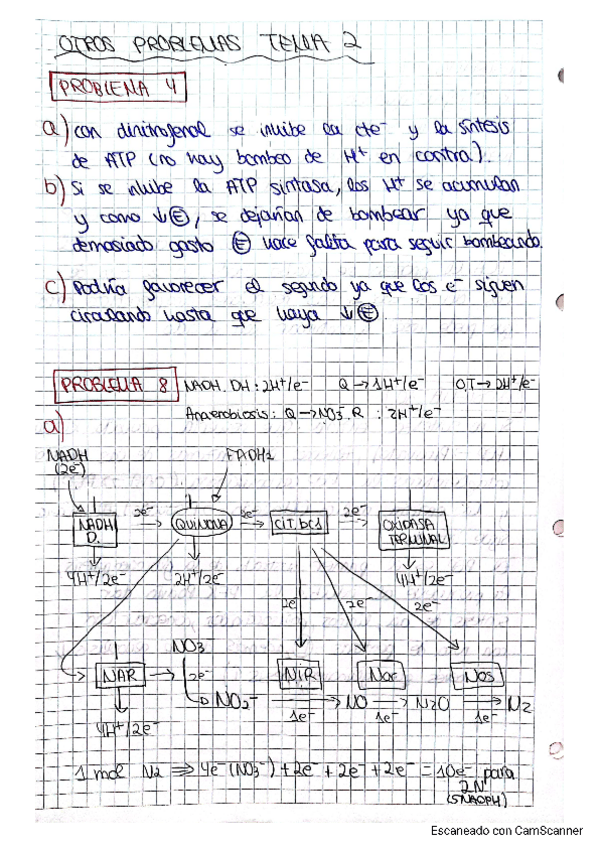 OTROS PROBLEMAS TEMA 2
PROBLEMA 4
a) con dinitrofenol se inhibe la cte⁻ y la síntesis
de ATP (no hay bombeo de H⁺ en contra).
b) Si se inhibe la ATP sintasa, los H⁺ se acumulan
y como ↓Ⓔ, se dejarían de bombear ya que
demasiado gasto Ⓔ hace falta para seguir bombeando.
c) Podría favorecer el segundo ya que los e⁻ siguen
circulando hasta que haya ↓Ⓔ
PROBLEMA 8 NADH.DH: 2H⁺/e⁻ Q → 1H⁺/e⁻ O.T → 2H⁺/e⁻
Anaerobiosis: Q → NO₃⁻.R : 2H⁺/e⁻
a)
NADH (2e⁻) FADH₂
NADH D. 2e⁻ QUINONA 2e⁻ CIT. bc1 2e⁻ OXIDASA TERMINAL
4H⁺/2e⁻ 2H⁺/2e⁻ 4H⁺/2e⁻
2e⁻ 2e⁻ 2e⁻
NO₃⁻
NAR 2e⁻ NIR Nor Nos
NO₂⁻ → NO → N₂O → N₂
1e⁻ 1e⁻ 1e⁻
4H⁺/2e⁻
1 mol N₂ ⇒ 4e⁻(NO₃⁻) + 2e⁻ + 2e⁻ + 2e⁻ = 10e⁻ para
2N
Escaneado con CamScanner